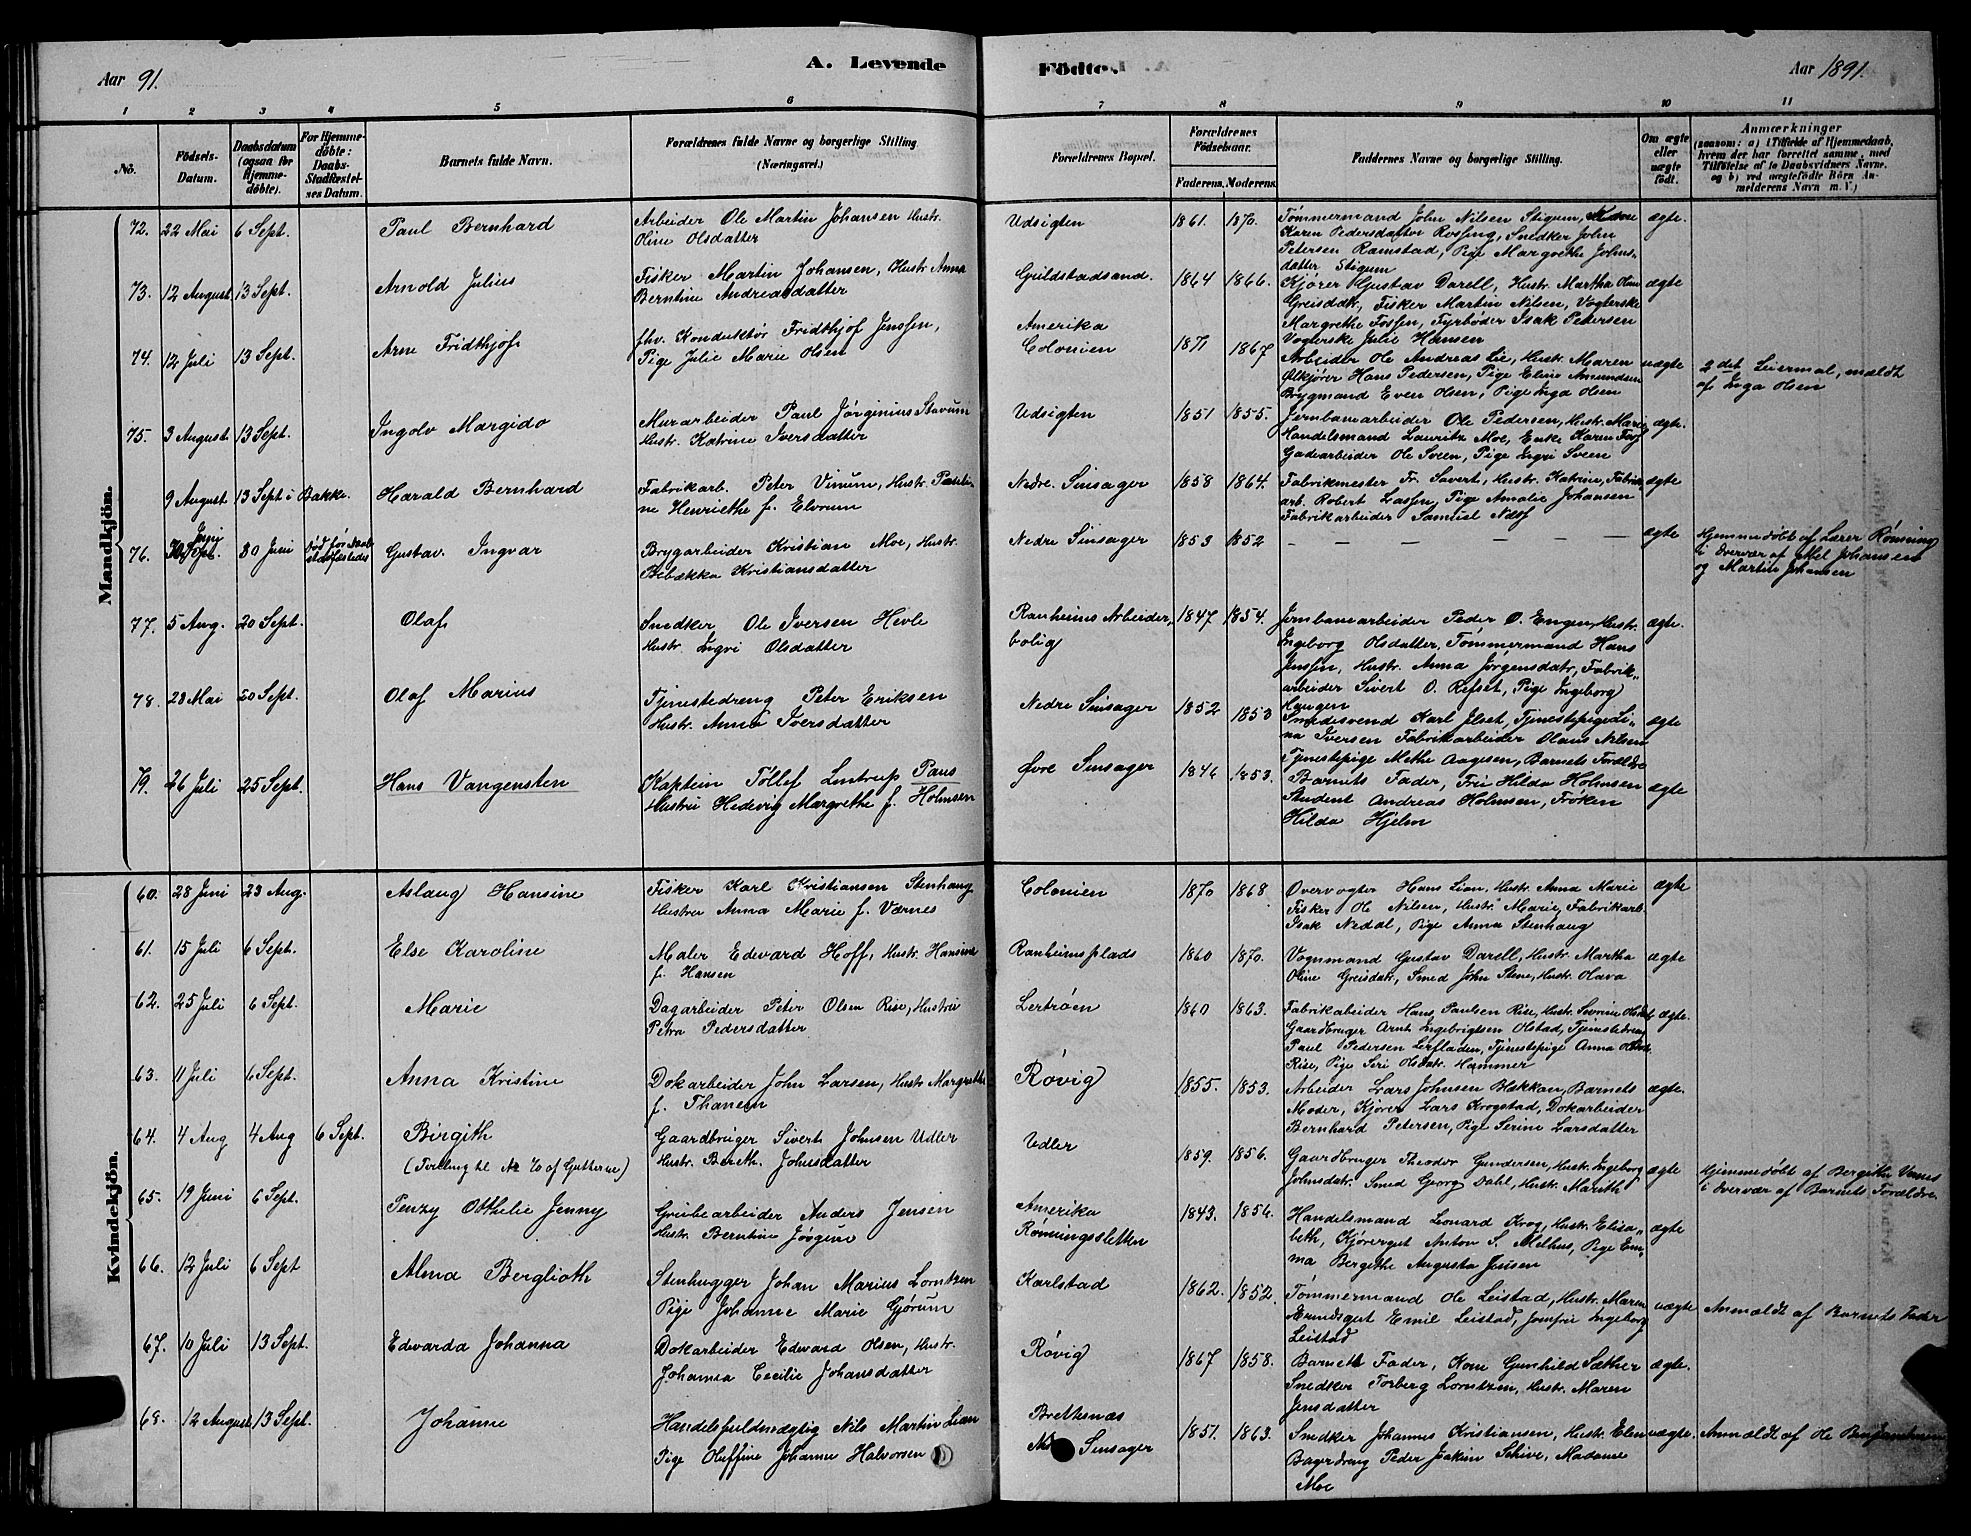 Aar 91.
A. Levende
Födte.
Aar 1891.
1 2 3 4 5 6 7 8 9 10 11
No.
Födsels-Datum.
Daabsdatum (ogsaa for Hjemme-døbte).
For Hjemme-døbte: Daabs-Stadfæstel-ses Datum.
Barnets fulde Navn.
Forældrenes fulde Navne og borgerlige Stilling (Næringsvei.)
Forældrenes Bopæl.
Forældrenes Födselsaar.
Faderens. Moderens.
Faddernes Navne og borgerlige Stilling.
Om ægte eller uægte födt.
Anmærkninger
(saasom: a) i Tilfælde af Hjemmedaab, hvem der har forrettet samme, med Tilföielse af to Daabsvidners Navne, og b) ved uægtefödte Börn An-melderens Navn m. V.)
Mandkjön.
72. 22 Mai 6 Sept. Paul Bernhard
Arbeider Ole Martin Johansen Hustr.
Oline Olsdatter
Udsigten 1861. 1870.
Tømmermand John Nilsen Stigum,
Karen Pedersdatter Rossing, Snedker John
Petersen Ramstad, Pige Margrethe Johns-
datter Stigum
ægte.
73. 12 August 13 Sept. Arnold Julius
Fisker Martin Johansen, Hustr. Anna
Berntine Andreasdatter
Guldstadsand. 1864 1866.
Kjører Gustav Darell, Hustr. Martha Oline
Greisdatr, Fisker Martin Nilsen, Vogterske
Margrethe Fossen, Fyrbøder Isak Petersen
Vogterske Julie Hansen
ægte
74. 12 Juli 13 Sept. Arne Fridthjof
fhv. Konduktør Fridthjof Jenssen,
Pige Julie Marie Olsen
Amerika
Colonien 1871 1867
Arbeider Ole Andreas Lie, Hustr. Maren
Ølkjører Hans Pedersen, Pige Eline Amundsen
Brygmand Even Olsen, Pige Inga Olsen
uægte
2det Leiermal, mældt
af Inga Olsen
75. 3 August 13 Sept. Ingolv Margido
Murarbeider Paul Jørginius Stavum
Hustr. Katrine Iversdatter
Udsigten 1851 1855.
Jernbanearbeider Ole Pedersen, Hustr. Marie,
Handelsmand Lauritz Moe, Enke Karen Foss
Gadearbeider Ole Sveen, Pige Ingri Sveen
ægte.
9 August 13 Sept i Bakke. Harald Bernhard
Fabrikarb. Peter Vinum, Hustr. Pauli-
ne Henriethe f. Elvrum
Nedre. Sinsager 1858 1864.
Fabrikmester Fr. Savert, Hustr. Katrine, Fabrik-
arb. Robert Lassen, Pige Amalie Johansen
Fabrikarbeider Samuel Næss
ægte
76. Juni 30 Juni Død før Daab stadfæstedes Gustav. Ingvar
Brygarbeider Kristian Moe, Hustr.
Bebækka Kristiansdatter
Nedre Sinsager 1853 1852
— — — — — — —
ægte
Hjemmedøbt af Lærer Rønning
i Overvær af Johansen
og Martin Johansen
77. 5 Aug. 20 Sept. Olaf
Snedker Ole Iversen Hevle
Hustr. Ingri Olsdatter
Ranheims Arbeider,
bolig 1847 1854.
Jernbanearbeider Peder O. Engen, Hustr.
Ingeborg Olsdatter, Tømmermand Hans
Jenssen, Hustr. Anna Jørgensdatr, Fabrik-
arbeider Sivert O. Refset, Pige Ingeborg
Haugen
ægte.
78. 23 Mai 20 Sept. Olaf Marius
Tjenestedreng Peter Eriksen
Hustr. Anna Iversdatter
Nedre Sinsager 1852 1853
Smedesvend Karl Ilset, Tjenestepige Li-
na Iversen Fabrikarbeider Olaus Nilsen
Tjenestepige Methe Aagesen, Barnets Forældre
ægte
79. 26 Juli 25 Sept. Hans Vangensten
Kaptein Tøllef Lintrup Paus
Hustru Hedevig Margrethe f. Holmsen
Øvre Sinsager 1846 1853.
Barnets Fader, Fru Hilda Holmsen
Student Andreas Holmsen, Frøken
Hilda Hjelm
ægte
Kvindekjön.
60. 28 Juni 23 Aug. Aslaug Hansine
Fisker Karl Kristiansen Stenhaug
Hustru Anna Marie f. Værnes
Colonien 1870 1868
Overvogter Hans Lian, Hustr. Anna Marie
Fisker Ole Nilsen, Hustr. Marie, Fabrikarb.
Isak Nedal, Pige Anna Stenhaug
ægte
61. 15 Juli 6 Sept. Else Karoline
Maler Edevard Hoff, Hustr. Hansine
f. Hansen
Ranheimsplads 1860 1870.
Vognmand Gustav Darell, Hustr. Martha
Oline Greisdatr, Smed John Stene, Hustr. Olava
ægte
62. 25 Juli 6 Sept. Marie
Dagarbeider Peter Olsen Rise, Hustru
Petra Pedersdatter
Lertrøen 1860 1863.
Fabrikabeider Hans Paulsen Rise, Hustr. Severine
Gaardbruger Arnt Ingebrigtsen Olstad, Tjenestedreng
Paul Pedersen Lerfladen, Tjenestepige Anna
Rise, Pige Seri Olsdatr. Hammer
ægte.
63. 11 Juli 6 Sept. Anna Kristine
Dokarbeider John Larsen, Hustr Margrethe
f. Thanem
Røvig 1855. 1853.
Arbeider Lars Johnsen Blekkan, Barnets
Moder, Kjører Lars Krogstad, Dokarbeider
Bernhard Petersen, Pige Serine Larsdatter
ægte.
64. 4 Aug 4 Aug 6 Sept. Birgith
(Tvilling til No 70 af Gutterne)
Gaardbruger Sivert Johnsen Udler
Hustr. Bereth. Johnsdatter
Udler 1859. 1856.
Gaardbruger Theodor Gundersen, Hustr. Ingeborg
Johnsdatr. Smed Georg Dahl, Hustr. Marith
ægte
Hjemmedøbt af Bergitha Vennes
i Overvær af Barnets Forældre
65. 19 Juni 6 Sept. Penzy Otthelie Jenny
Grubearbeider Anders Jensen
Hustr. Berntine Jørgine
Amerika
Rønningsletten 1843. 1856.
Handelsmand Leonard Krog, Hustr. Elisa-
beth, Kjøresvet Anton S. Melhus, Pige Em-
ma Bergithe Augusta Jensen
ægte
66. 12 Juli 6 Sept Alma Bergliath
Stenhugger Johan Marius Lorntzen
Pige Johanne Marie Gjørum
Karlstad 1862. 1852.
Tømmermand Ole Leistad, Hustr. Maren
Emil Leistad, Jomfru Ingeborg
Leistad
uægte
Anmældt af Barnets Fader
67. 10 Juli 13 Sept. Edevarda Johanna
Dokarbeider Edevard Olsen, Hustr.
Johanna Cecilie Johansdatter
Røvig 1867 1858.
Barnets Fader, Kone Gunhild Sæther
Snedker Torberg Lorntzen, Hustr. Maren
Jensdatter
ægte.
68. 12 August 13 Sept. Johanne
Handelsfuldmægtig Nils Martin Lian
Pige Oluffine Johanne Halvorsen
Brettesnæs
Sinsager 1851. 1863.
Snedker Johannes Kristiansen, Hustr. Elen
Bagerdreng Peder Joakim Schive, Madame
Moe
uægte.
Anmældt af Ole Benjaminsen